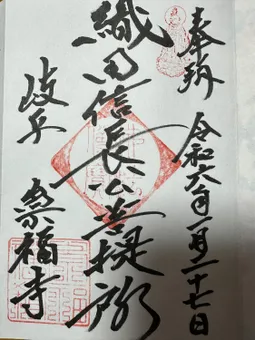 奉拝
令和六年一月二十七日
織田信長公菩提所
岐阜
崇福寺